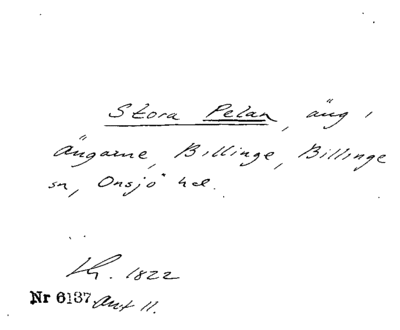 Stora Pelan, äng i
Ängarne, Billinge, Billinge
sn, Onsjö hd.
Lh. 1822
Nr 6137 Akt 11.